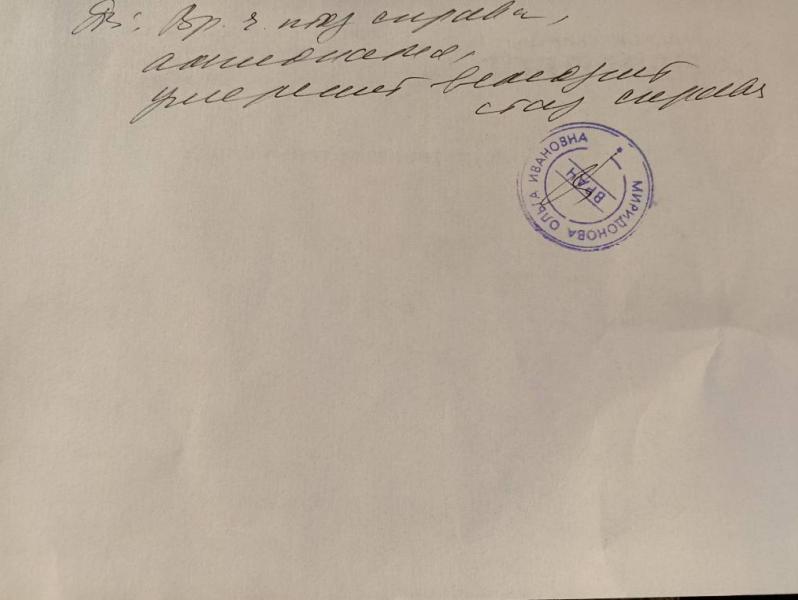 Ds: Вр. ч. птоз справа,
анизокория,
умерений венозный
стаз справа
МИРИДОНОВА ОЛЬГА ИВАНОВНА
ВРАЧ